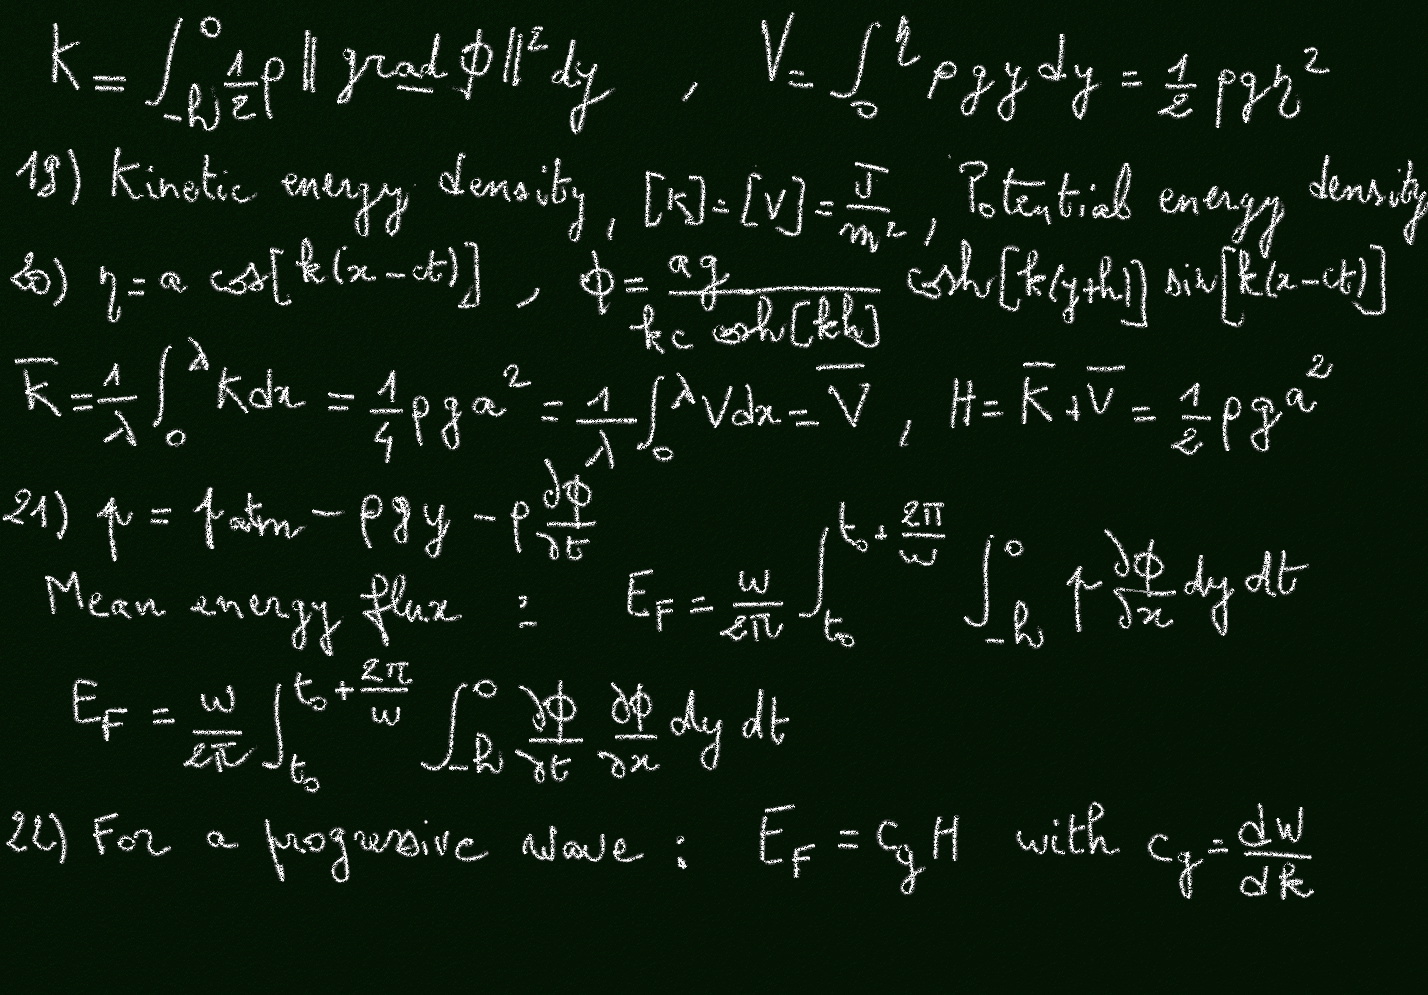 K = ∫_{-h}^{0} 1/2 ρ ‖ grad ϕ ‖² dy , V = ∫_{0}^{η} ρ g y dy = 1/2 ρ g η²
19) Kinetic energy density, [K] = [V] = J/m², Potential energy density
20) η = a cos[k(x-ct)] , ϕ = ag/(kc cosh[kh]) cosh[k(y+h)] sin[k(x-ct)]
K̅ = 1/λ ∫_{0}^{λ} K dx = 1/4 ρ g a² = 1/λ ∫_{0}^{λ} V dx = V̅ , H = K̅ + V̅ = 1/2 ρ g a²
21) p = p_atm - ρ g y - ρ ∂ϕ/∂t
Mean energy flux : E_F = w/2π ∫_{t₀}^{t₀+2π/w} ∫_{-h}^{0} p ∂ϕ/∂x dy dt
E_F = w/2π ∫_{t₀}^{t₀+2π/w} ∫_{-h}^{0} ∂ϕ/∂t ∂ϕ/∂x dy dt
22) For a progressive wave : E_F = c_g H with c_g = dw/dk